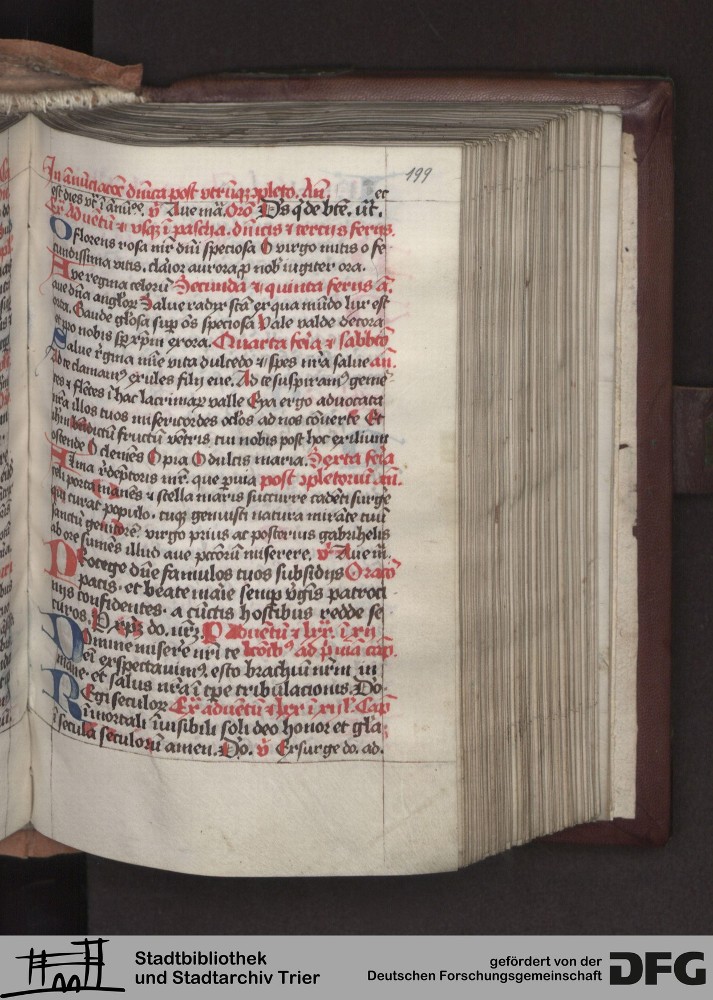 199
In anūciacōe dn̄ica post utrūqꝫ ɔpleto. An̄. et
Ex aduētū ⁊ usqꝫ ī pascha. dn̄icis ⁊ tercus ferijs.
O florens rosa mr̄ dn̄i speciosa O virgo mitis o fe
cundissima vitis. claīor aurora ꝓ nob̄ iugiter ora.
Ave regina celorū Secunda ⁊ quinta ferijs a.
aue dn̄a angloꝝ Salue radyx sc̄ā ex qua mūdo lux est
orta. Gaude gl̄osa sup̄ ōs speciosa Vale valde decora
et pro nobis sp̄ xp̄m exora. Quarta feīa ⁊ sabbīo
Salue r̄gina mīe vita dulcedo ⁊ spes nr̄a salue an̄.
Ad te clamamꝰ exules filij eue. Ad te suspiramꝰ geme
tes ⁊ flētes ī hac lacrimaꝝ valle Eya ergo aduocata
nr̄a illos tuos misericordes oclōs ad nos cōuerte Et
fructū vētris tui nobis post hoc exilium
ostende O clemēs O pia O dulcis maria. Sexta feīa
Alma r̄dēptoris mr̄. que ꝑuia post ɔpletoriū an̄.
celi porta manēs ⁊ stella maris succurre cadēti surge
qui curat populo. tuqꝫ genuisti natura mirāte tuū
sanctū genitorē. virgo prius ac posterius gabrihelis
ab ore sumēs illud aue pccōrū miserere. v̄ Aue m̄.
Protege dn̄e famulos tuos subsidijs Oracō
pacis. et beate maīe semp v̄gīs patroci
nijs confidentes. a cūctis hostibus redde se
curos. P xp̄ꝫ do. nr̄ꝫ.
Domine miserē nr̄i te ad p̄ma cap̄.
eī expectauimꝰ. esto brachiū nr̄m in
mane. et salus nr̄a ī tp̄e tribulacionis. Do.
Regi seculoꝝ Ex aduētū ⁊ lxx Cap̄
īmortali īuisibili soli deo honor et gl̄a
ī secula seculorū amen. Do. v̄ Exsurge do. ad.
Stadtbibliothek
und Stadtarchiv Trier
gefördert von der
Deutschen Forschungsgemeinschaft
DFG